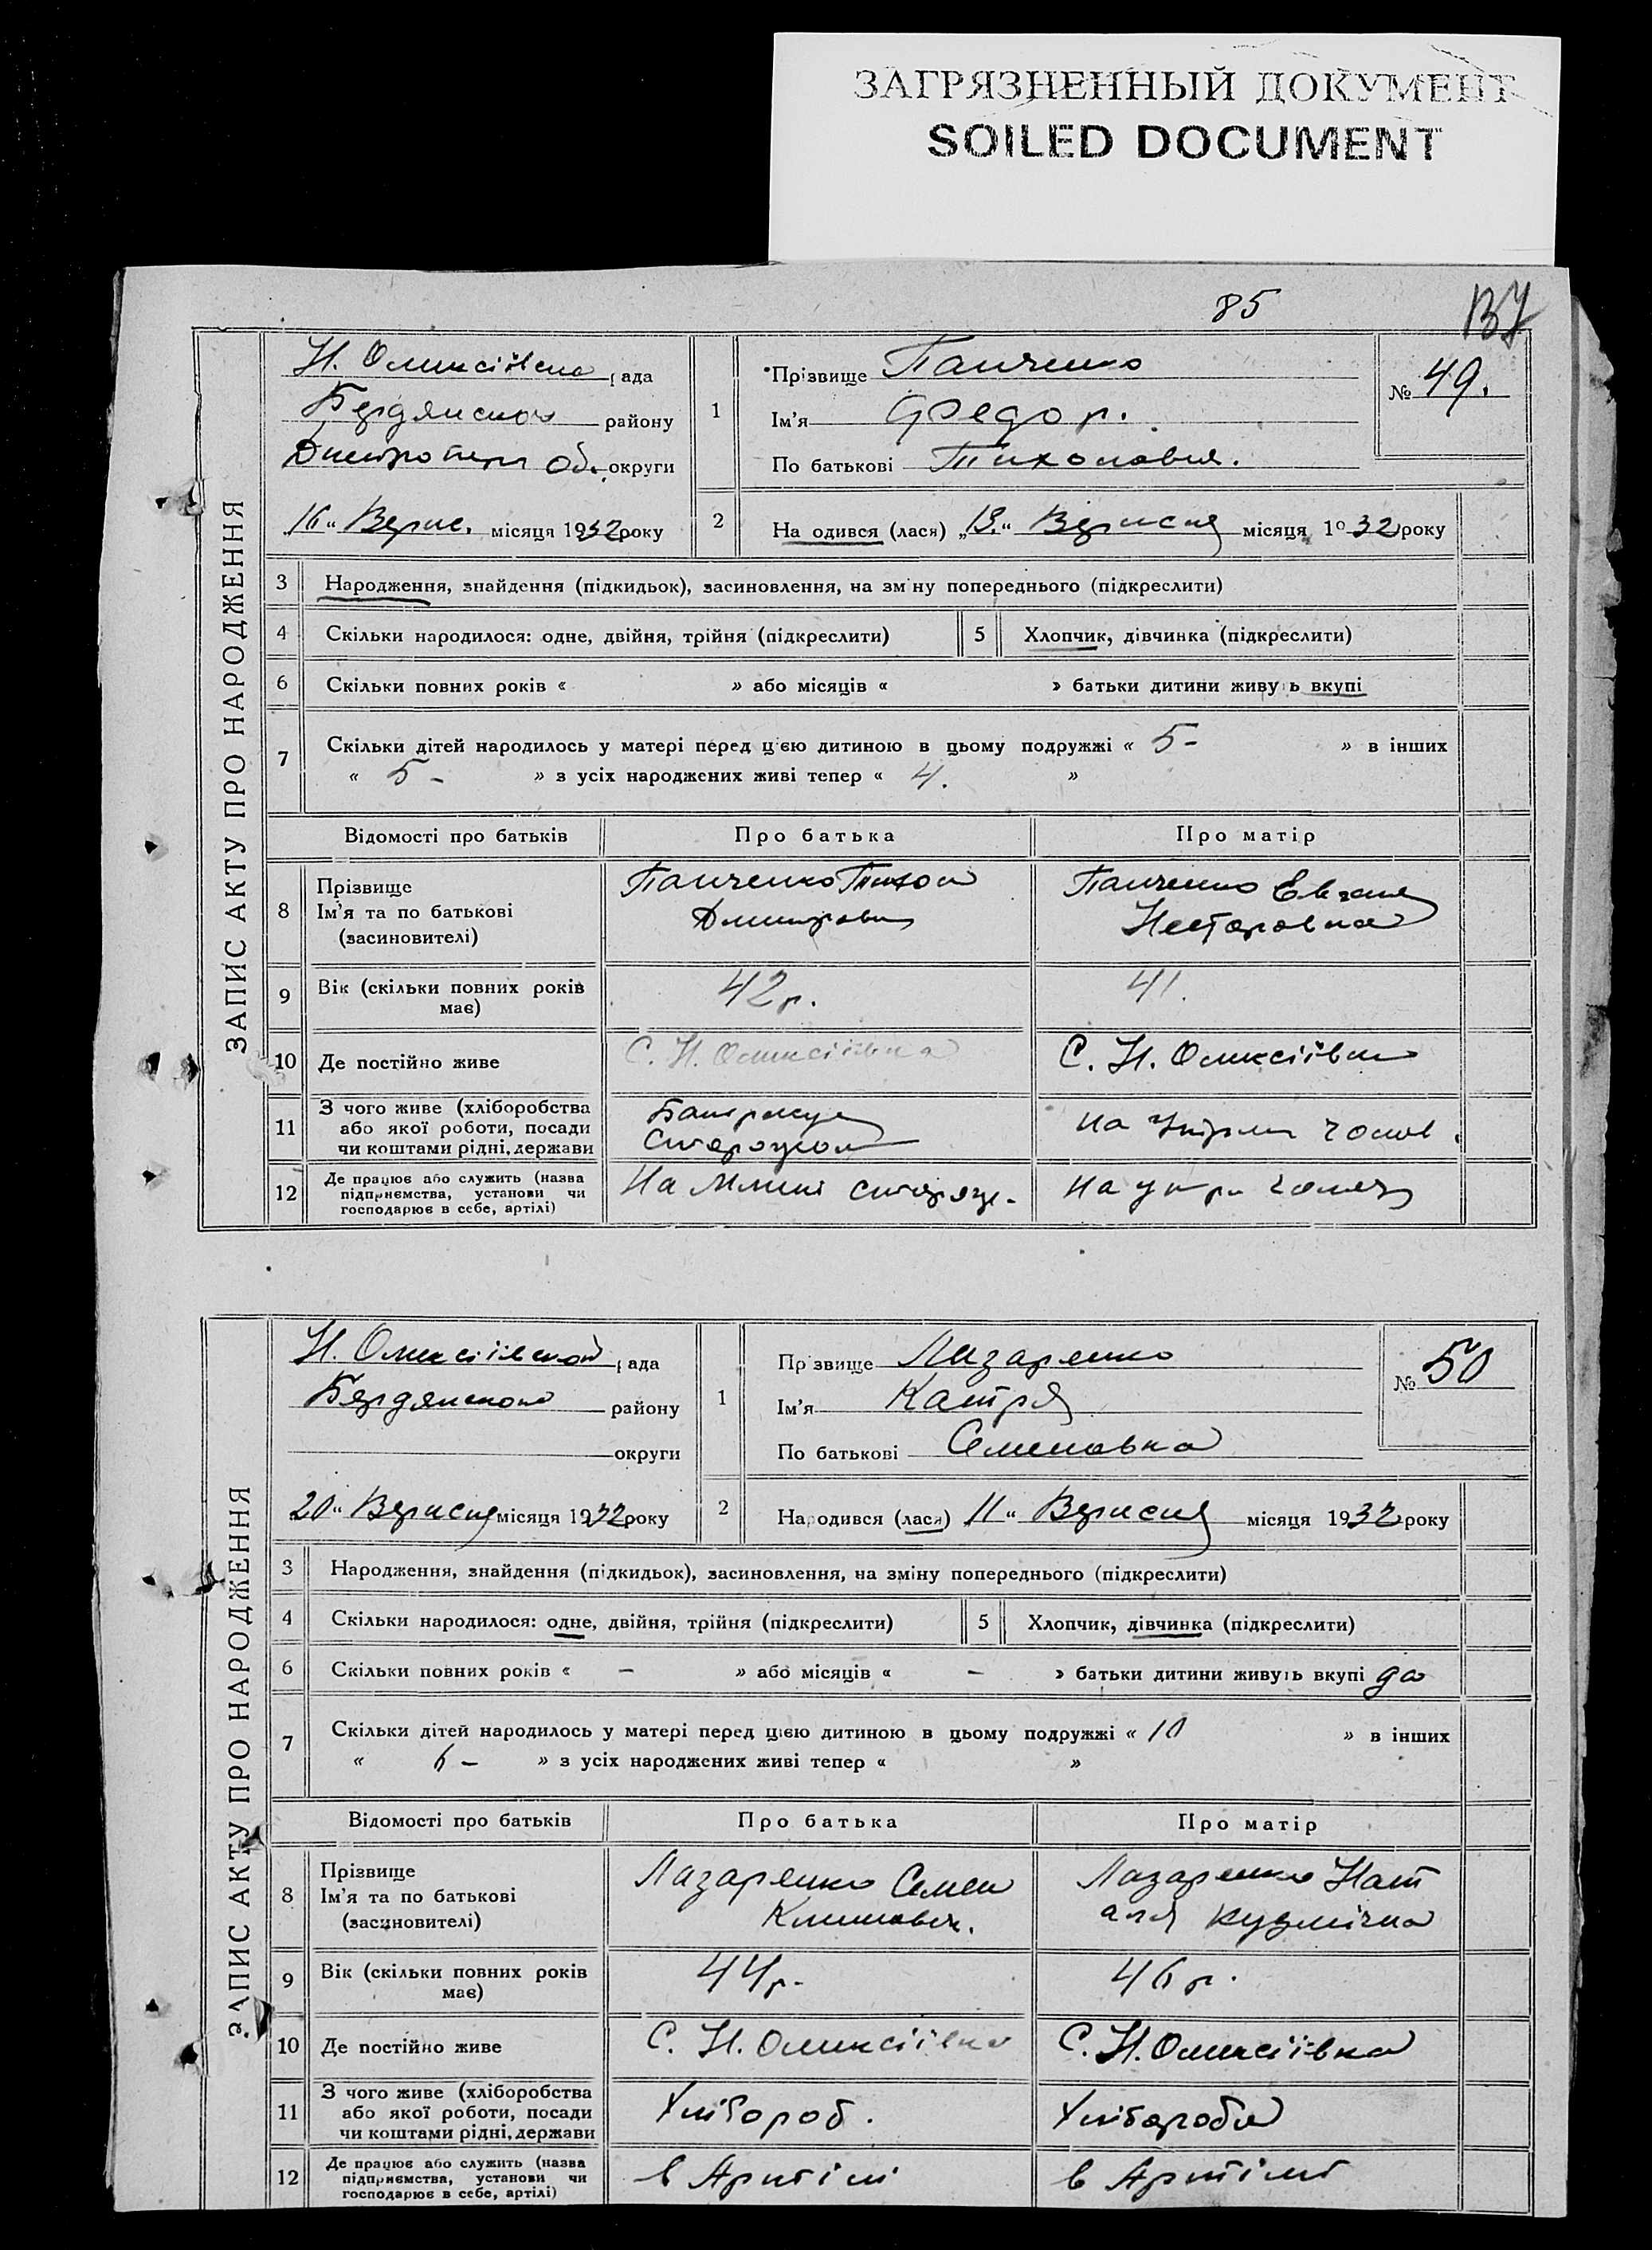 ЗАГРЯЗНЕННЫЙ ДОКУМЕНТ
SOILED DOCUMENT
85
ЗАПИС АКТУ ПРО НАРОДЖЕННЯ
Н. Олексіївська рада
Бердянського району
Дніпропетр Обл. округи
1
Прізвище Панченко
Ім'я Федор.
По батькові Тихонович.
№ 49.
16 " Верес. місяця 1932 року
2
На одився (лася) „13." Вересня місяця 19 32 року
3 Народження, знайдення (підкидьок), засиновлення, на зміну попереднього (підкреслити)
4 Скільки народилося: одне, двійня, трійня (підкреслити) 5 Хлопчик, дівчинка (підкреслити)
6 Скільки повних років « » або місяців « » батьки дитини живуть вкупі
7 Скільки дітей народилось у матері перед цією дитиною в цьому подружжі « 5 - » в інших
« 5 - » з усіх народжених живі тепер « 4. »
Відомості про батьків Про батька Про матір
8 Прізвище
Ім'я та по батькові
(засиновителі)
Панченко Тихон
Дмитрович
Панченко Евгения
Несторовна
9 Вік (скільки повних років
має)
42 р.
41.
10 Де постійно живе С. Н. Олексіївка С. Н. Олексіївка
11 З чого живе (хліборобства
або якої роботи, посади
чи коштами рідні, держави
на чолов.
12 Де працює або служить (назва
підприємства, установи чи
господарює в себе, артілі)
На Млині
на
ЗАПИС АКТУ ПРО НАРОДЖЕННЯ
Н. Олексіївської рада
Бердянського району
округи
1
Прізвище Лазаренко
Ім'я Катря
По батькові Семеновна
№ 50
20 " Вересня місяця 1932 року
2
Народився (лася) 11 " Вересня місяця 1932 року
3 Народження, знайдення (підкидьок), засиновлення, на зміну попереднього (підкреслити)
4 Скільки народилося: одне, двійня, трійня (підкреслити) 5 Хлопчик, дівчинка (підкреслити)
6 Скільки повних років « - » або місяців « - » батьки дитини живуть вкупі да
7 Скільки дітей народилось у матері перед цією дитиною в цьому подружжі « 10 » в інших
« 6 - » з усіх народжених живі тепер « »
Відомості про батьків Про батька Про матір
8 Прізвище
Ім'я та по батькові
(засиновителі)
Лазаренко Семен
Климович.
Лазаренко Нат
аля Кузмічна
9 Вік (скільки повних років
має)
44 р.
46 р.
10 Де постійно живе С. Н. Олексіївка С. Н. Олексіївка
11 З чого живе (хліборобства
або якої роботи, посади
чи коштами рідні, держави
Хлібороб.
Хлібороба
12 Де працює або служить (назва
підприємства, установи чи
господарює в себе, артілі)
в Артілі
в Артілі